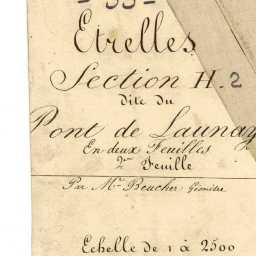 - 33 -
Etrelles
Section H. 2
dite du
Pont de Launay
En deux Feuilles
2me Feuille
Par Mr. Beucher Géomètre
Echelle de 1 à 2500